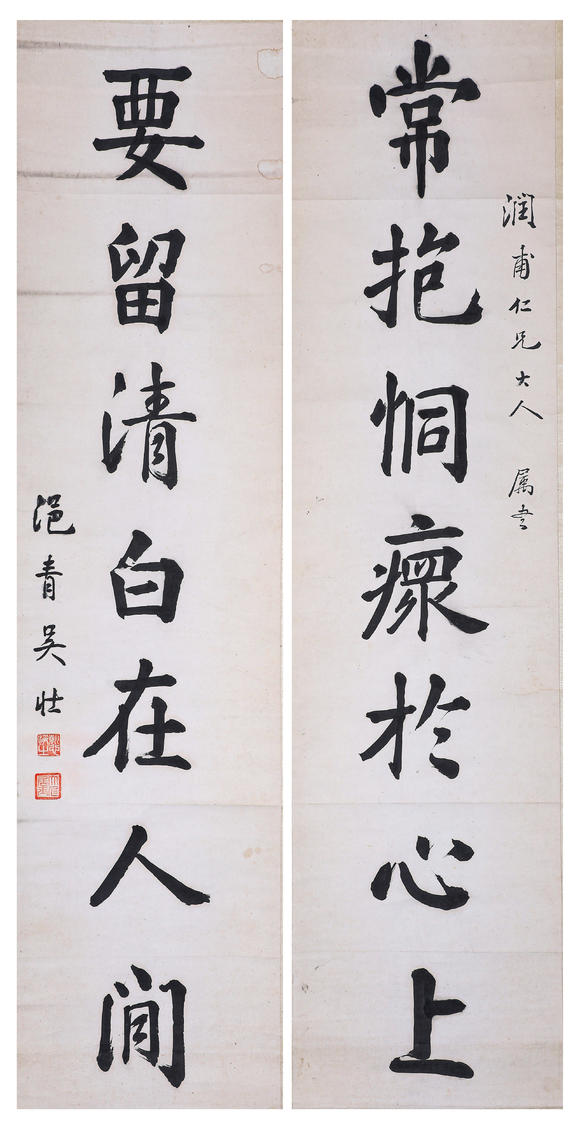 潤甫仁兄大人 属書
常抱恫瘝於心上
要留清白在人間
浥青吴壮